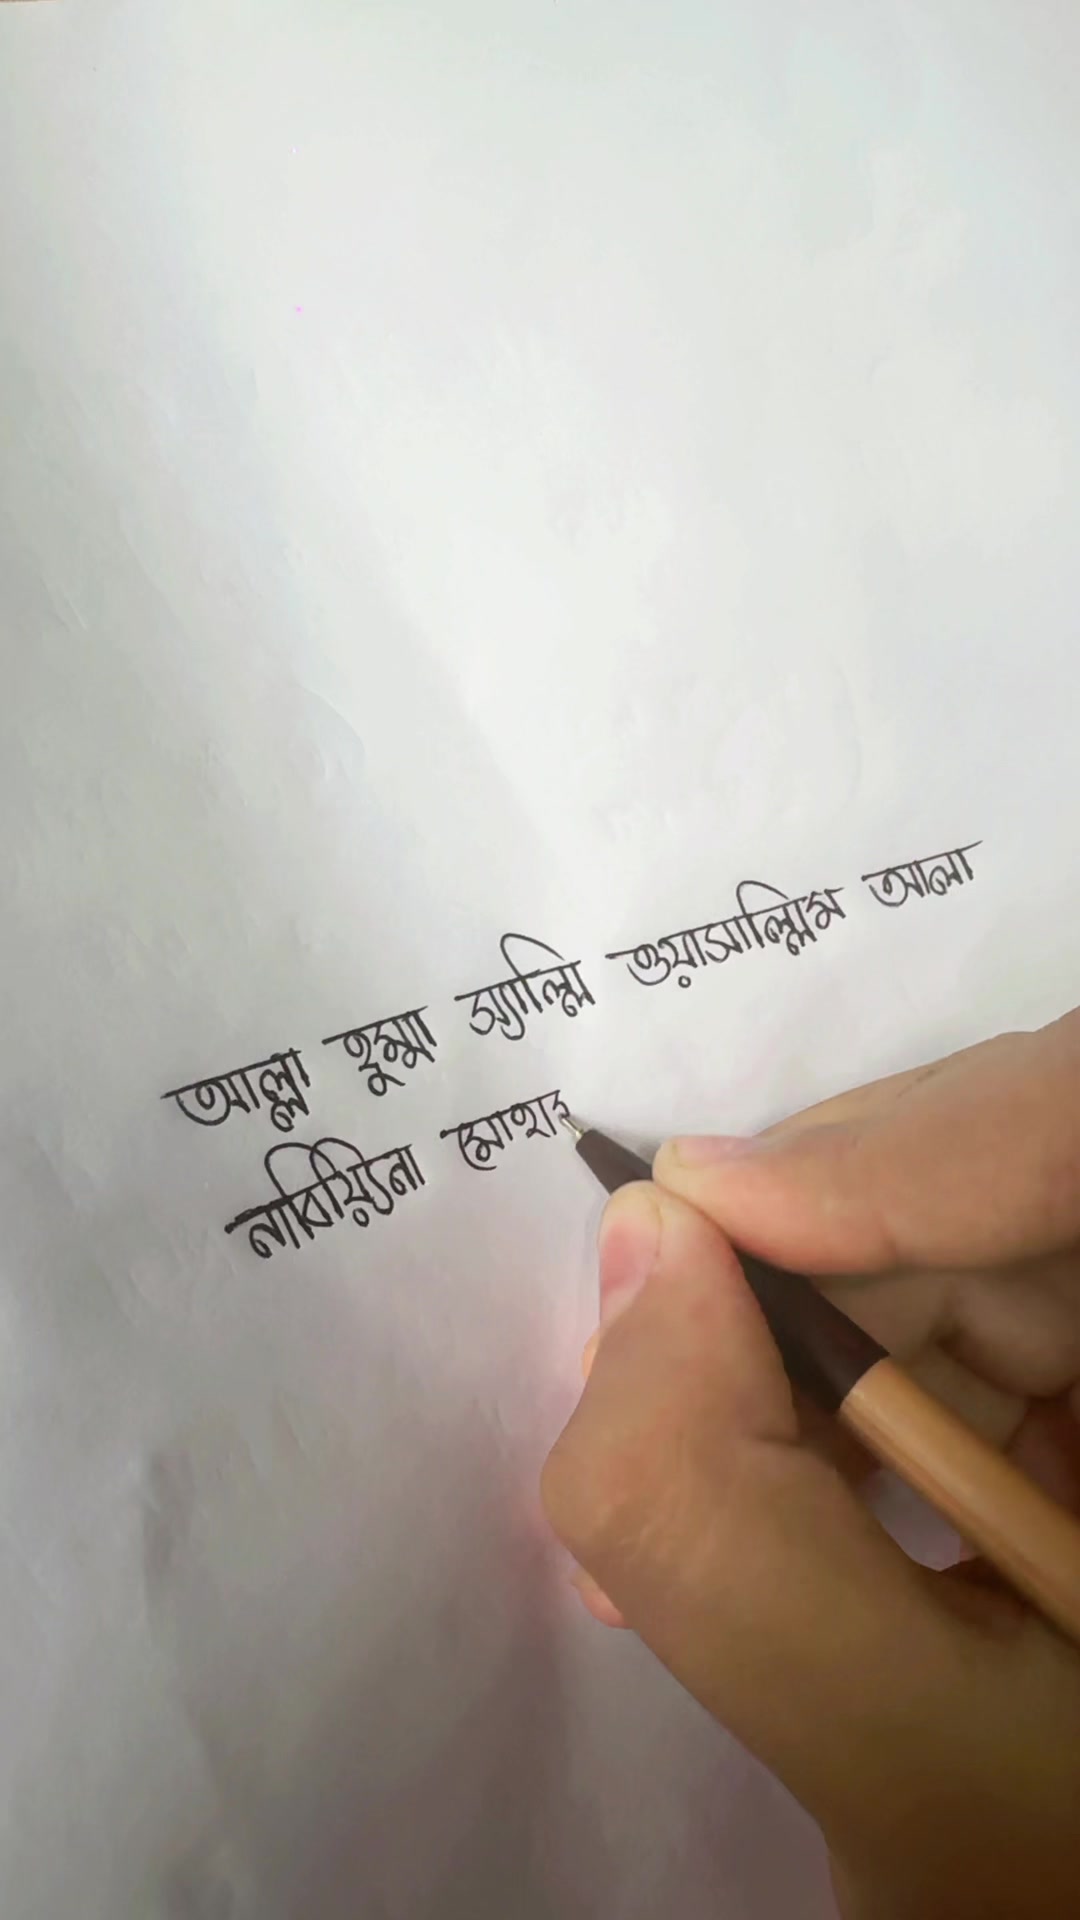 আল্লা হুম্মা স্যাল্লি ওয়াসাল্লিম আলা
নাবিয়্যিনা মোহা